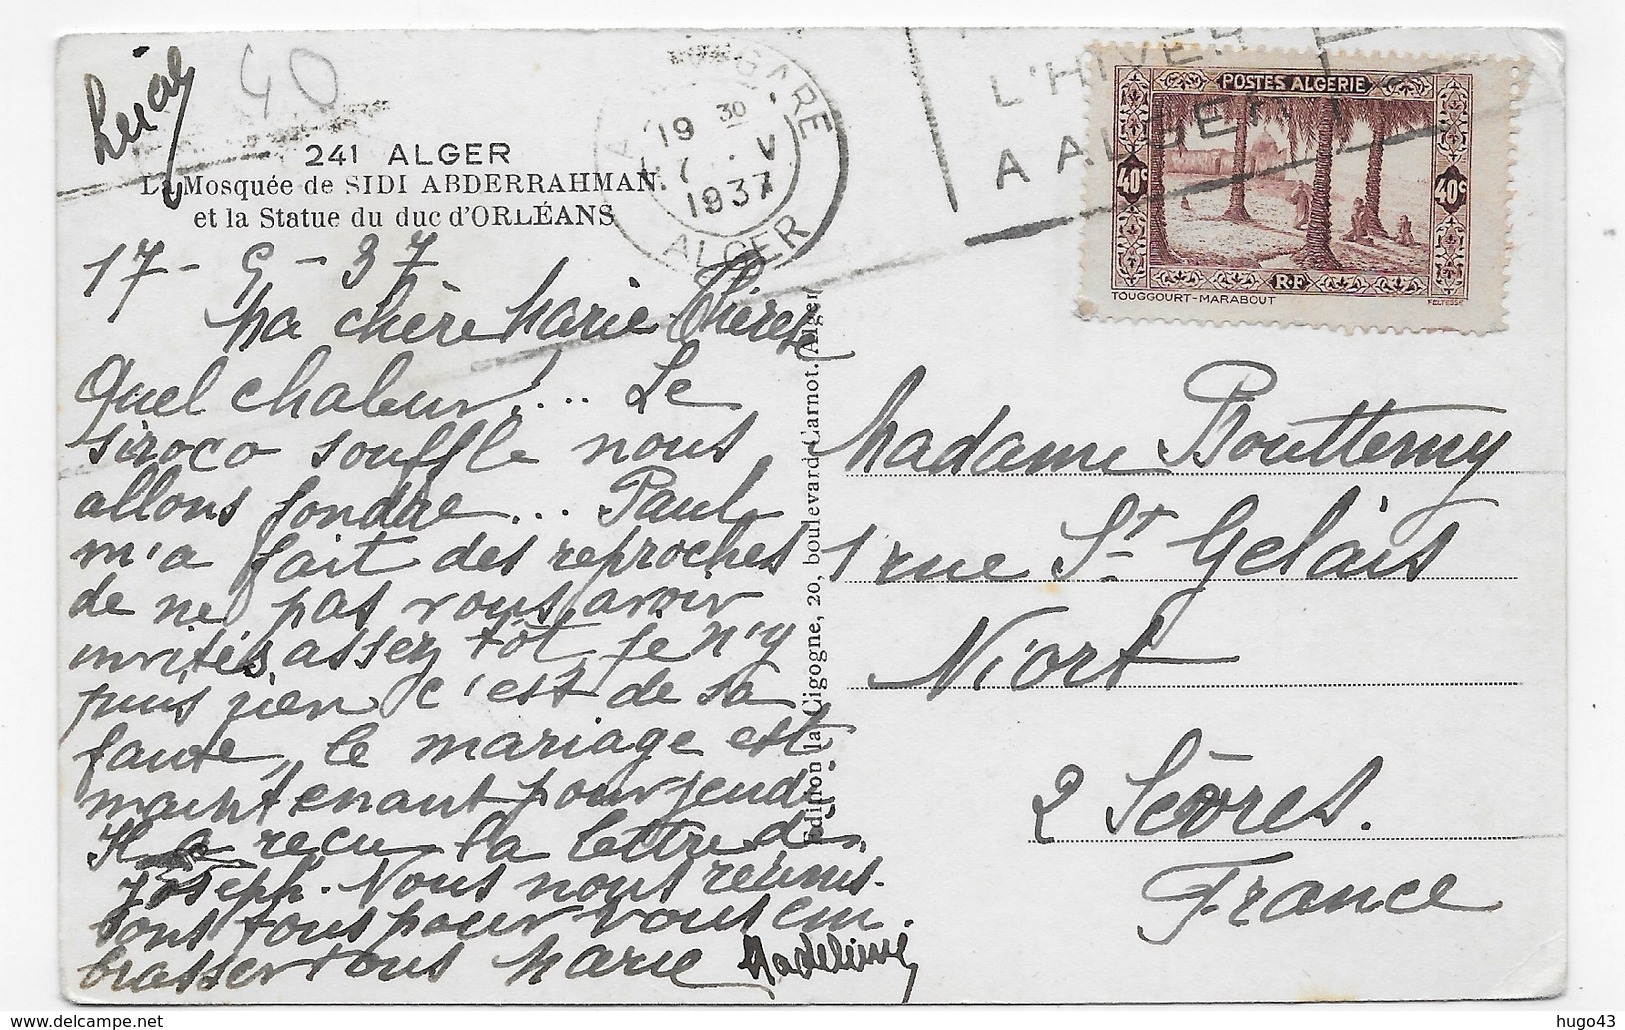 Lucien
40
241 ALGER
La Mosquée de SIDI ABDERRAHMAN
et la Statue du duc d'ORLÉANS
ALGER GARE
19 30
17 . V
1937
ALGER
L'HIVER
A ALGER
POSTES ALGERIE
40c 40c
RF
TOUGGOURT-MARABOUT
FELTESSE
17 - 5 - 37
Ma chère Marie Thérèse
Quel chaleur!... Le
siroco souffle nous
allons fondre... Paul
m'a fait des reproches
de ne pas vous avoir
invités assez tôt, je n'y
puis rien c'est de sa
faute, le mariage est
maintenant pour jeudi
Il a reçu la lettre de
Joseph. Nous nous réunis-
sons tous pour vous em
brasser tous Marie Madeleine
Edition la Cigogne, 20, boulevard Carnot. Alger
Madame Boutterny
1 rue St Gelais
Niort
2 Sèvres.
France
hugo43